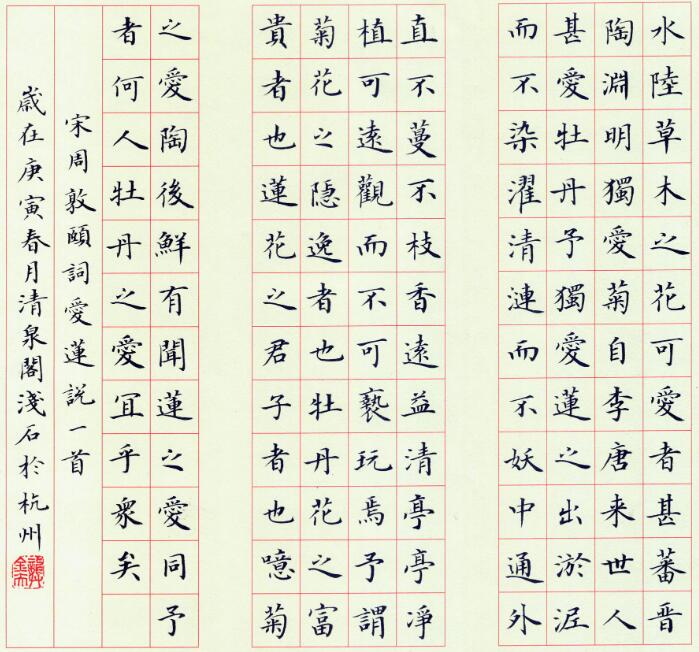 水陸草木之花可愛者甚蕃晋
陶淵明獨愛菊自李唐来世人
甚愛牡丹予獨愛蓮之出淤泥
而不染濯清漣而不妖中通外
直不蔓不枝香遠益清亭亭凈
植可遠觀而不可褻玩焉予謂
菊花之隱逸者也牡丹花之富
貴者也蓮花之君子者也噫菊
之愛陶後鮮有聞蓮之愛同予
者何人牡丹之愛冝乎衆矣
宋周敦頤詞愛蓮説一首
歲在庚寅春月清泉閣淺石於杭州